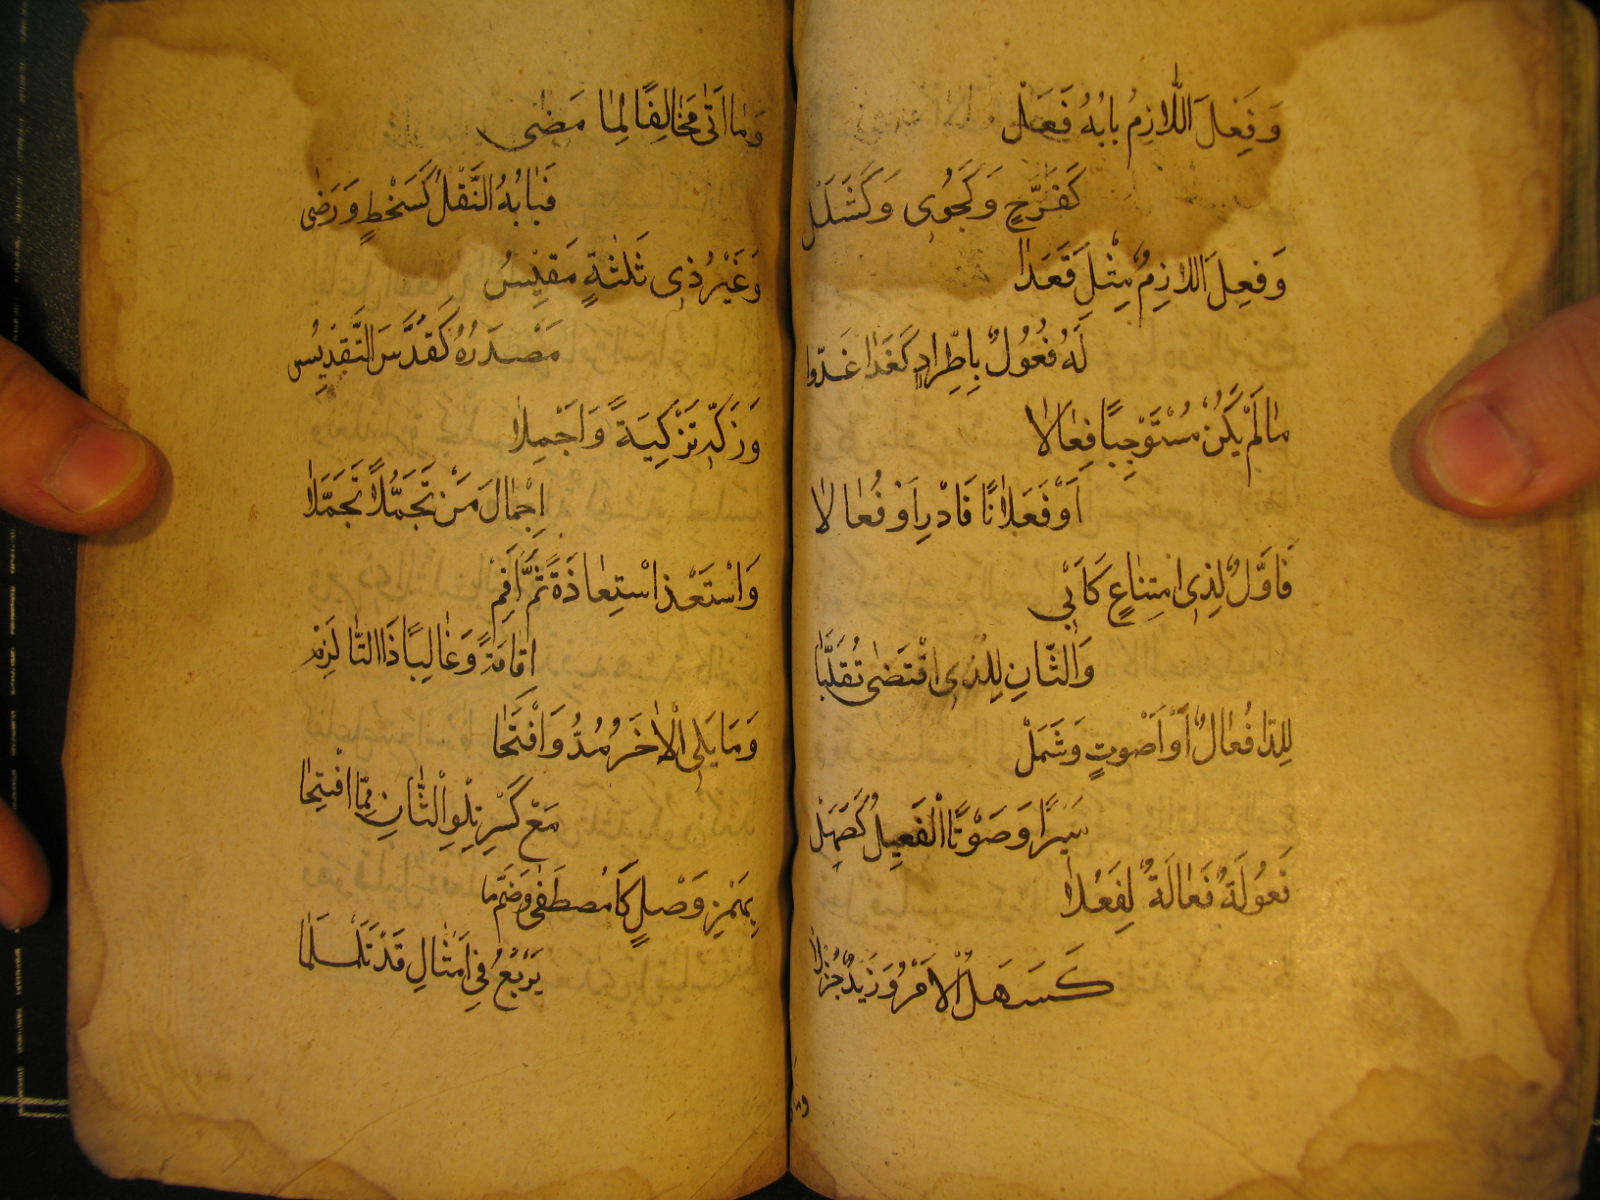 وَفَعِلَ اللَّازِمُ بَابُهُ فَعَلْ
كَفَرَحٍ وَكَجَوٰى وَكَشَلَلْ
وَفَعَلَ اللَّازِمُ مِثْلَ قَعَدَا
لَهُ فُعُولٌ بِاطِّرَادٍ كَغَدَا غَدْوًا
مَا لَمْ يَكُنْ مُسْتَوْجِبًا فِعَالَا
اَوْ فَعَلَانًا فَادْرِ اَوْ فُعَالَا
فَاَوَّلٌ لِذِى امْتِنَاعٍ كَاَبٰى
وَالثَّانِ لِلَّذِى اقْتَضٰى تَقَلُّبَا
لِلدَّا فُعَالٌ اَوْ اَصْوتٍ وَشَمَلْ
سَيْرًا وَصَوْتًا الْفَعِيلُ كَصَهَلْ
فُعُولَةٌ فَعَالَةٌ لِفَعُلَا
كَسَهُلَ الْاَمْرُ وَزَيْدٌ جَزُلَا
وَمَا اَتٰى مُخَالِفًا لِمَا مَضٰى
فَبَابُهُ النَّقْلُ كَسَخْطٍ وَرَضٰى
وَغَيْرُ ذِى ثَلٰثَةٍ مَقِيسُ
مَصْدَرُهُ كَقُدِّسَ التَّقْدِيسُ
وَزَكِّهِ تَزْكِيَةً وَاَجْمِلَا
اِجْمَالَ مَنْ تَجَمُّلًا تَجَمَّلَا
وَاسْتَعِذِ اسْتِعَاذَةً ثُمَّ اَقِمْ
اِقَامَةً وَغَالِبًا ذَا التَّا لَزِمْ
وَمَا يَلِى الْاٰخَرُ مُدَّ وَافْتَحَا
مَعْ كَسْرِ تِلْوِ الثَّانِ مِمَّا افْتُتِحَا
بِهَمْزِ وَصْلٍ كَاصْطَفٰى وَضُمَّ مَا
يَرْبَعُ فِى اَمْثَالِ قَدْ تَلَمْلَمَا